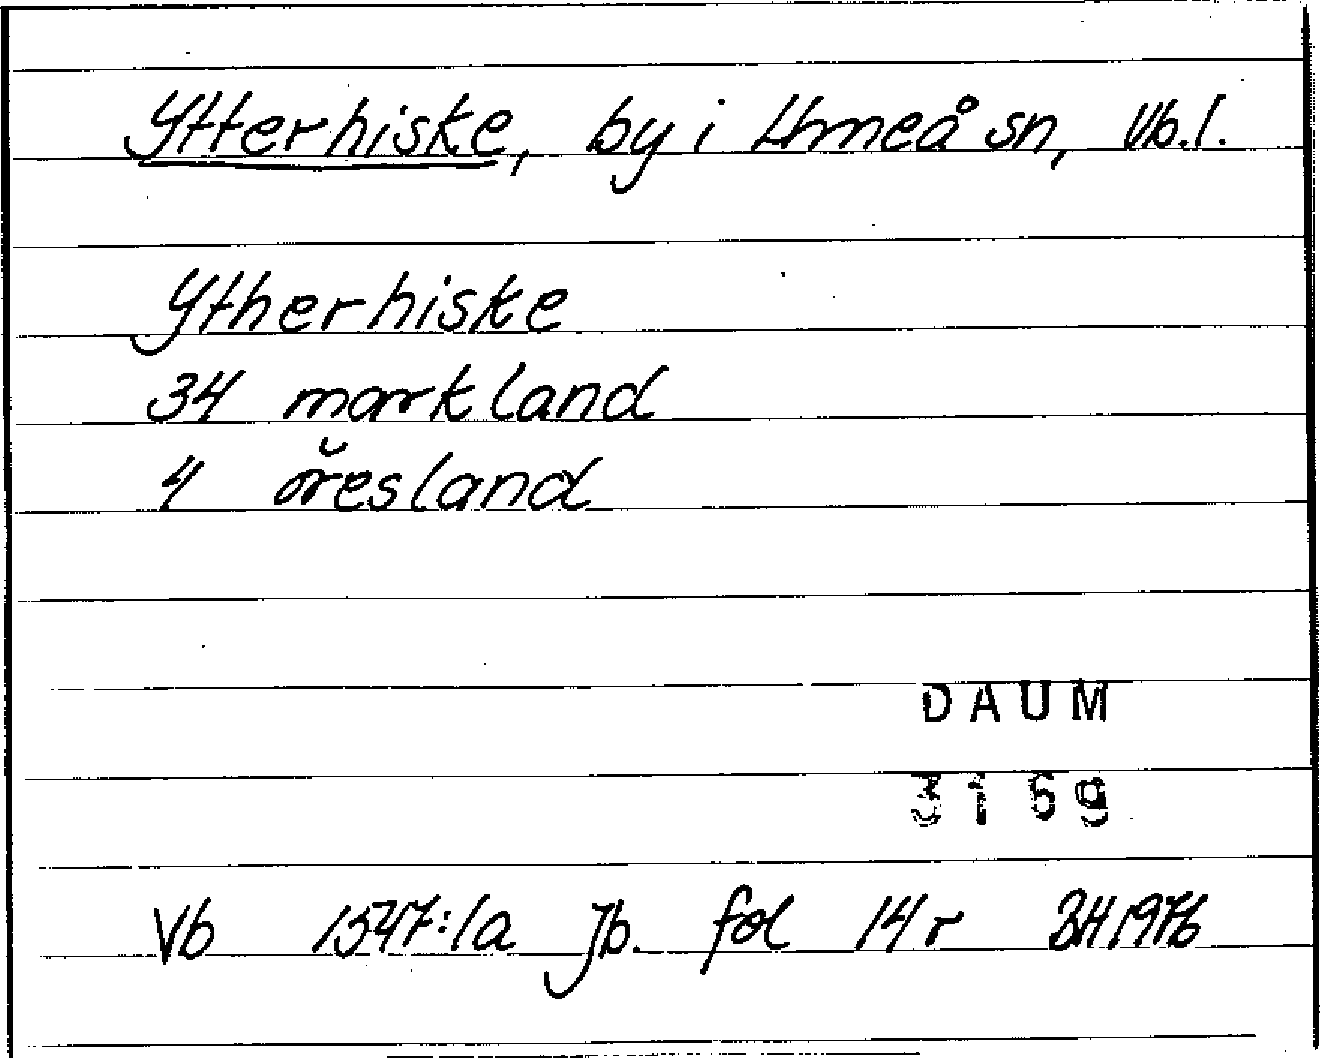 Ytterhiske, by i Umeå sn, Vb.l.
Ytherhiske
34 markland
4 öresland
DAUM
3169
Vb 1547:1a Jb. fol 14r BH 1976